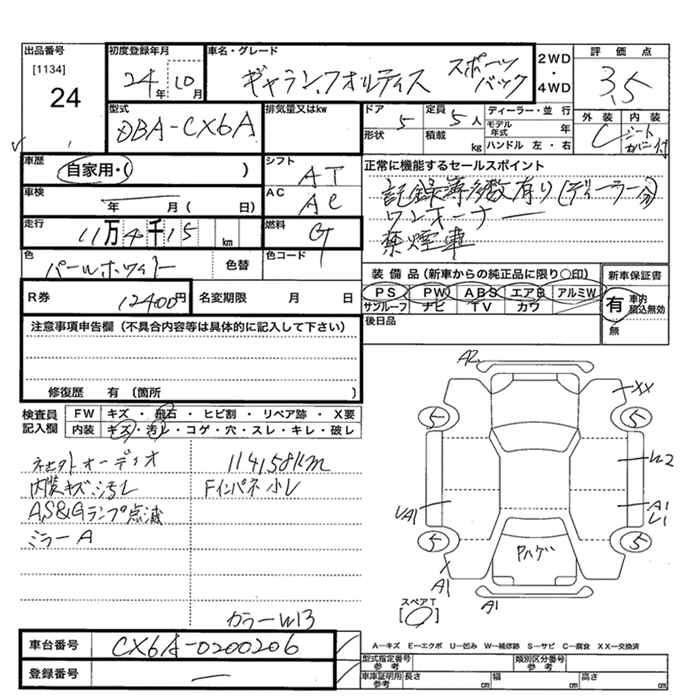 出品番号
[1134]
24
初度登録年月
24年 10月
車名・グレード
ギャランフォルティス スポーツバック
2WD・4WD
評価点
3.5
型式
DBA-CX6A
排気量又はkw
ドア
5
定員
5人
形状
積載
kg
ディーラー・並行
モデル年式 年
ハンドル 左・右
外装
C
内装
シートカバー付
車歴
自家用・( )
シフト
AT
正常に機能するセールスポイント
記録簿多数有り(ディーラー分)
ワンオーナー
禁煙車
車検
年 月( 日)
AC
AC
走行
11万4千15 km
燃料
G
色
パールホワイト
色替
色コード
装備品(新車からの純正品に限り○印)
PS PW ABS エアB アルミW
サンルーフ ナビ TV カワ
新車保証書
有 車内積込無効
無
R券
12400円
名変期限 月 日
後日品
注意事項申告欄(不具合内容等は具体的に記入して下さい)
修復歴 有(箇所
検査員記入欄
FW キズ・飛石・ヒビ割・リペア跡・X要
内装 キズ・汚レ・コゲ・穴・スレ・キレ・破レ
社外オーディオ
内装キズ汚レ
AS&Gランプ点滅
ミラーA
114158km
Fインパネ小レ
カラーW13
A2
XX
5
5
W2
UA1
A1
U1
5
5
Pハゲ
A1
A1
スペアT
A―キズ E―エクボ U―凹み W―補修跡 S―サビ C―腐食 XX―交換済
車台番号
CX6A-0200206
登録番号
—
型式指定番号参考
類別区分番号参考
車庫証明用参考
長さ cm
幅 cm
高さ cm